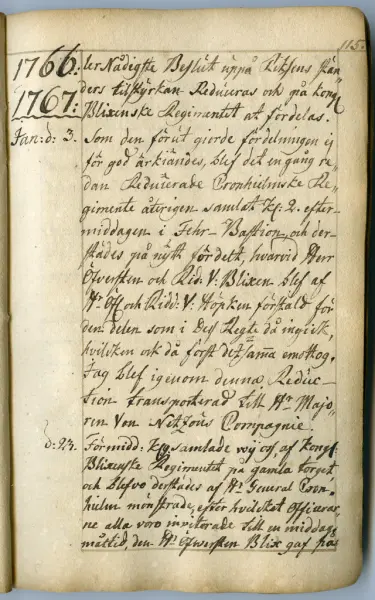 115.
1766. ler Nådigste Beslut uppå Ricksens Stän
1767. ders tilstyrkan Reduceras och på Kongl
Blixenske Regimentet at fördelas.
Jan: d: 3. Som den förut giorde fördelningen ej
för god är kiändes, blef det en gång re„
dan Reducerade Cronhielmske Re„
gimente återigen samlat Kl: 2. efter-
middagen i Fehr-Bastion, och der-
städes på nytt fördelt, hvarvid Herr
Öfversten och Ridd: V: Blixen blef af
Hr Öf och Ridd: V: Höpken förestäld för
den delen som i Des Regte då ingick,
hvilcken ock då först det samma emottog.
Jag blef igenom denna Reduc-
tion transporterad till Hr Majo„
ren Von Compagnie.
d: 23. Förmidd: Kl: samlade wij oss af Kongl:
Blixenske Regimentet på gamla torget
och blefvo derstädes af Hr General Cron„
hielm mönstrade, efter hvilcket Officerar„
ne alla voro inviterade till en middags
måltid, den Hr Öfwersten Blix gaf hos